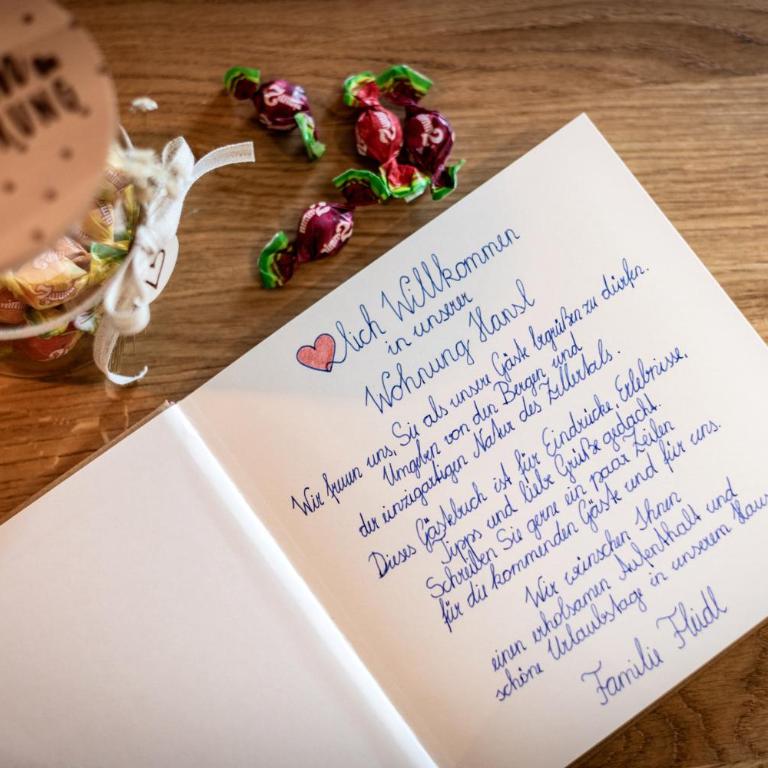 lich Willkommen
in unserer
Wohnung Hansl
Wir freuen uns, Sie als unsere Gäste begrüßen zu dürfen.
Umgeben von den Bergen und
der einzigartigen Natur des Zillertals.
Dieses Gästebuch ist für Eindrücke, Erlebnisse,
Tipps und liebe Grüße gedacht.
Schreiben Sie gerne ein paar Zeilen
für die kommenden Gäste und für uns.
Wir wünschen Ihnen
einen erholsamen Aufenthalt und
schöne Urlaubstage in unserem Haus
Familie